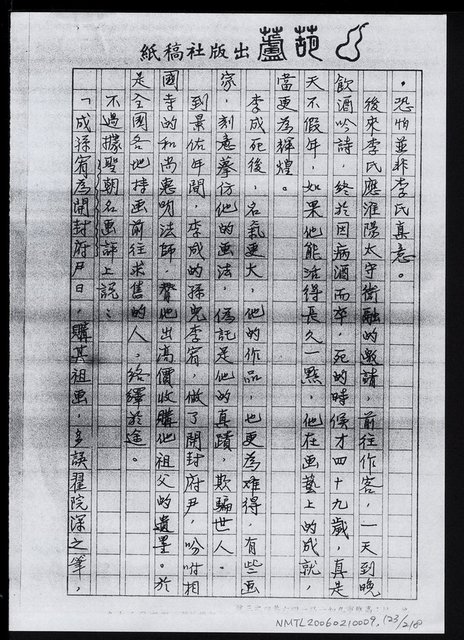 葫蘆出版社稿紙
，恐怕並非李氏真意。
後來李氏應淮陽太守衛融的邀請，前往作客，一天到晚
飲酒吟詩，終於因病酒而卒，死的時候才四十九歲，真是
天不假年，如果他能活得長久一點，他在画藝上的成就，
當更為輝煌。
李成死後，名氣更大，他的作品，也更為难得，有些画
家，刻意摹仿他的画法，偽託是他的真蹟，欺騙世人。
到景佑年間，李成的孫兒李宥，做了開封府尹，吩咐相
國寺的和尚惠明法師，替他出高價收購他祖父的遺墨。於
是全國各地持画前往求售的人，絡繹於途。
不過據聖朝名画評上說：
「成孫宥為開封府尹日，購其祖画，多誤翟院深之筆，
NMTL20060210009, 123/218